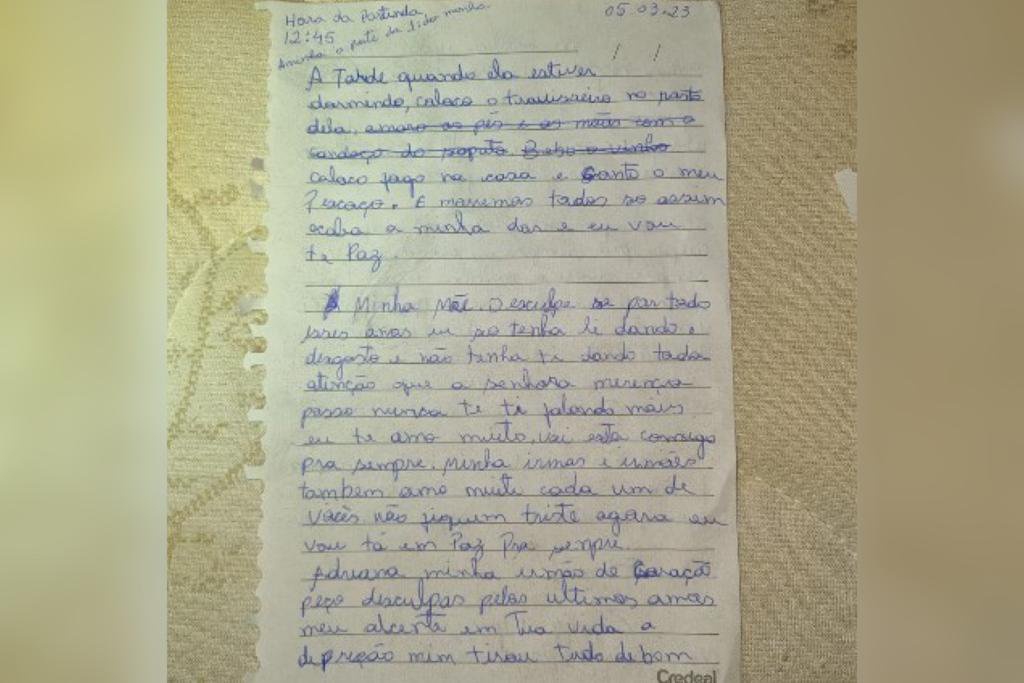 Hora da Partida
05 03.23
12:45
A Tarde quando ela estiver
dormindo, coloco o travisseiro no rosto
dela. amaro os pés e as mãos com o
do sapato. Bebo o vinho
coloco fogo na casa e Ganto o meu
Pescoço. E morremos todos so assim
acaba a minha dor e eu vou
te Paz.
Minha Mãe. Desculpe se por todo
esses anos eu so tenha li dando
desgosto e não tenha te dando toda
atenção que a senhora merencia
posso nunca te ti falando mais
eu te amo muito, vai esta comsigo
pra sempre. Minha irmas e irmãos
tambem amo muito cada um de
vocês não fiquem triste agora eu
vou tá em Paz Pra sempre.
Adriana minha irmão de Coração
peço desculpas pelos ultimos
meu em Tua vida a
depreção mim tirou tudo de bom
Credeal